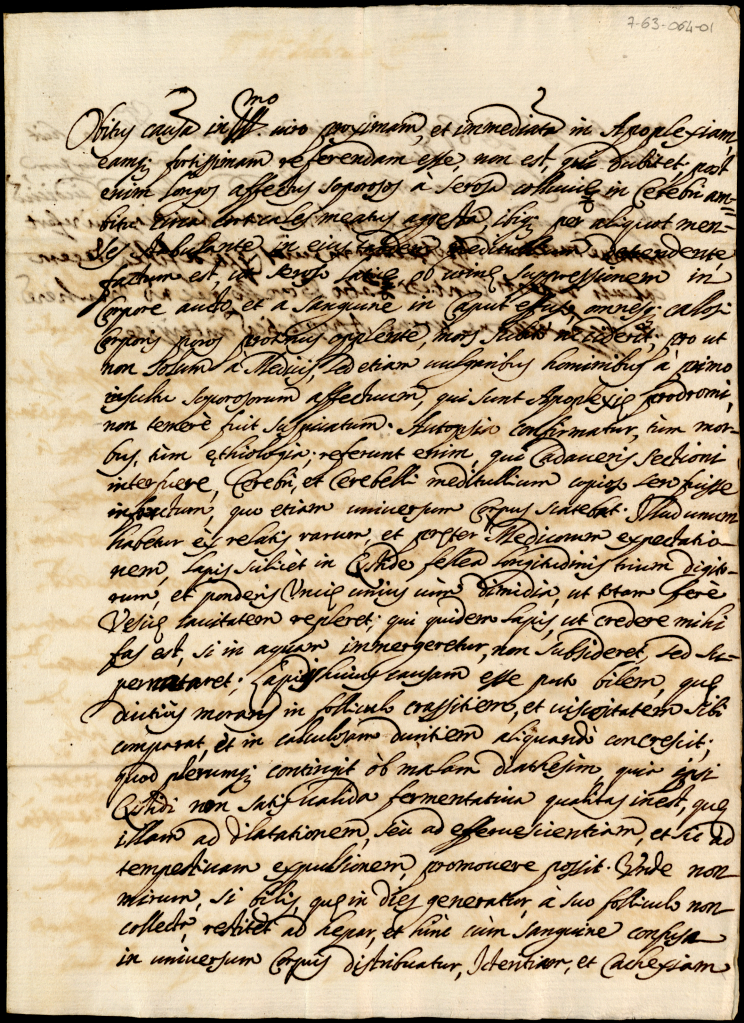 7-63-064-01
Obitus causã in Ill.mo viro proximam, et immediatã in Apoplexiam,
eamq; fortissimam referendam esse, non est, qui dubitet; post
enim longos affectus soporosos à serosa colluvie in Cerebri am=
bitu, circa corticales meatus aggesta, ibiq; per aliquot men=
ses in eius meditullium detendente,
factum est, ut seroso latice ob urinę suppressionem in
Corpore aucto, et a sanguine in Caput effuso, omnesq; callosi
Corporis poros prorsus opplente, mors subito acciderit; pro ut
non solum à Medicis, sed etiam vulgaribus hominibus à primo
insultu soporosorum affectuum, qui sunt Apoplexię prodromi,
non temerè fuit suspicatum. Autopsia confirmatur, tùm mor=
bus, tùm ęthiologia; referunt enim, qui Cadaveris sectioni
interfuere, Cerebri, et Cerebelli meditullium copioso sero fuisse
infarctum, quo etiam universum Corpus scatebat. Illud unum
habetur ex relatis rarum, et pręter Medicorum expectatio=
nem, lapis scilicèt in Cystide fellea longitudinis trium digito=
rum, et ponderis Uncię unius cùm dimidia, ut totam ferè
Vesicę cavitatem repleret; qui quidem lapis, ut credere mihi
fas est, si in aquam immergeretur, non subsideret, sed su=
pernataret; Lapidis huius causam esse puto bilem, quę
diutiùs morans in folliculo crassitiem, et viscositatem sibi
comparat, et in calculosam duritiem aliquandò concrescit;
quod plerumq; contingit ob malam diathesim, quia ipsi
Cystidi non satis valida fermentativa qualitas inest, quę
illam ad dilatationem, seù ad effervescientiam, et sic ad
tempestivam expulsionem, promovere possit. Unde non
mirum, si bilis, quę in dies generatur, à suo folliculo non
collecta, restitet ad hepar, et hinc cùm sanguine confusa
in universum Corpus distribuatur, Ictericiam, et Cachexiam